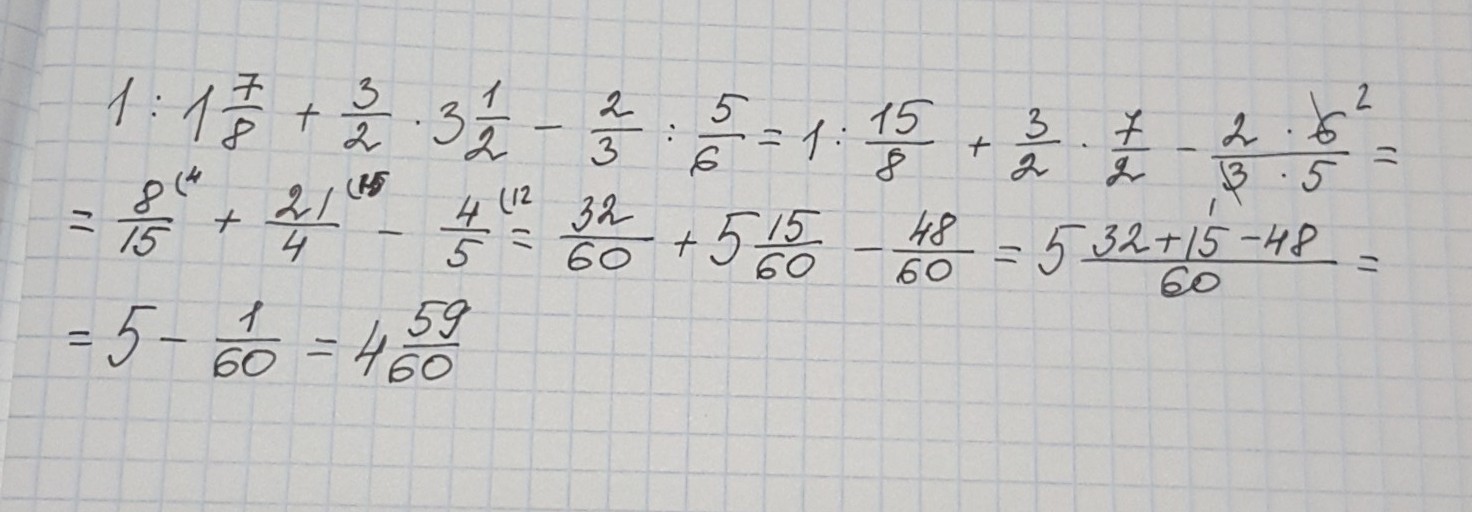 1 : 1 7/8 + 3/2 · 3 1/2 - 2/3 : 5/6 = 1 : 15/8 + 3/2 · 7/2 - 2 · 6 2/3 · 5 1 =
= 8/15 (4 + 21/4 (15 - 4/5 (12 = 32/60 + 5 15/60 - 48/60 = 5 32+15-48/60 =
= 5 - 1/60 = 4 59/60